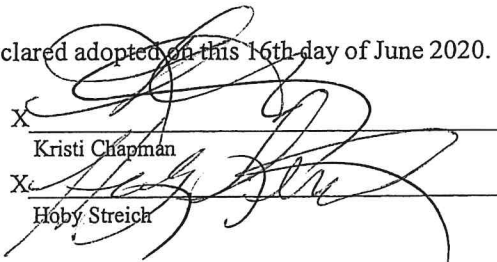 clared adopted on this 16th day of June 2020.
X
Kristi Chapman
X
Hoby Streich